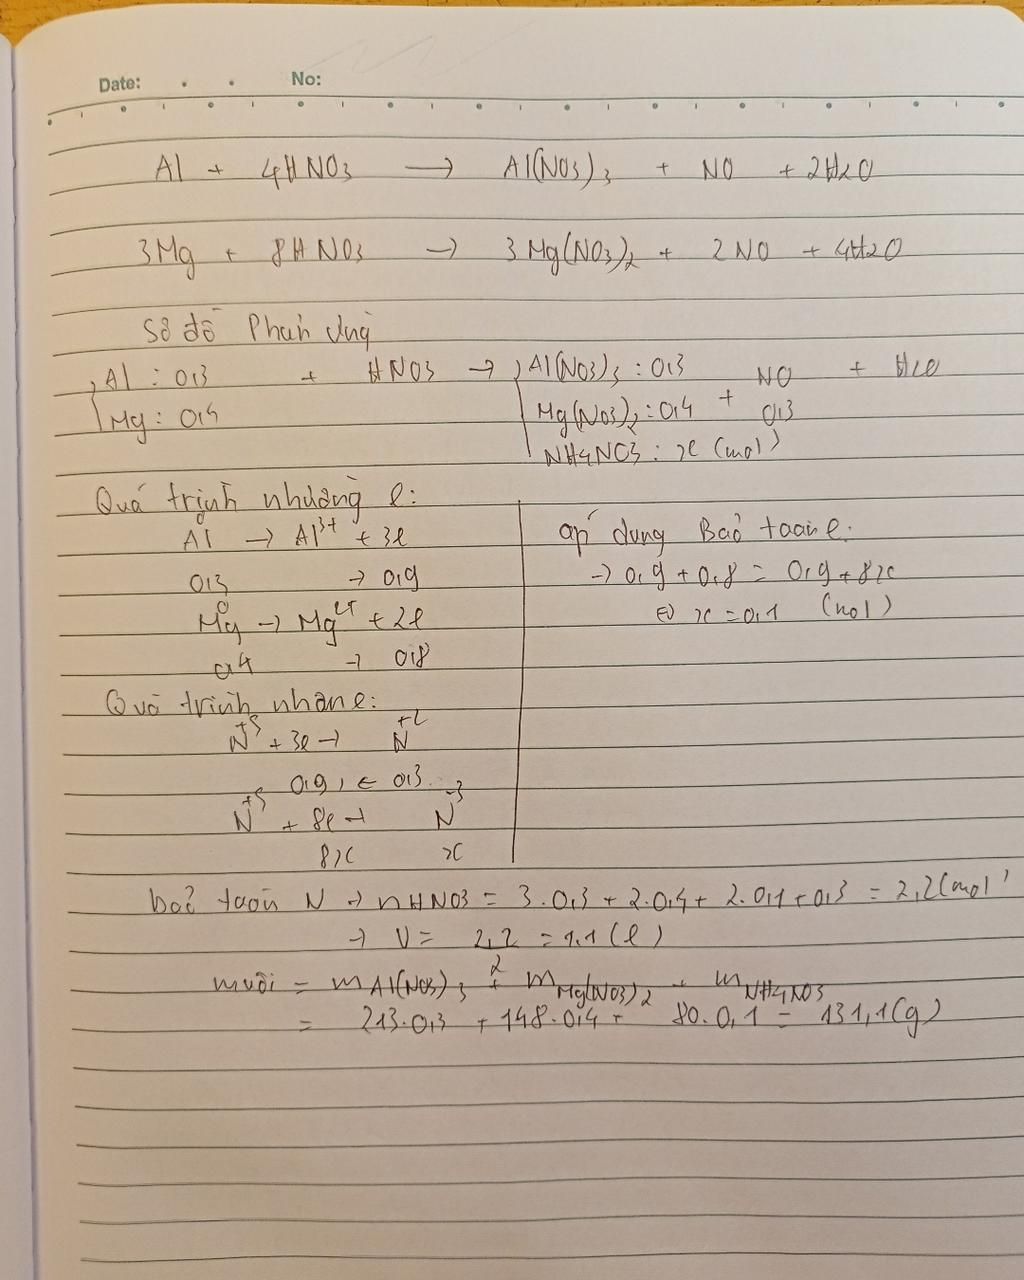 Date: No:
Al + 4HNO3 → Al(NO3)3 + NO + 2H2O
3Mg + 8HNO3 → 3Mg(NO3)2 + 2NO + 4H2O
Sơ đồ Phản ứng
Al : 0,3 + HNO3 → Al(NO3)3 : 0,3 NO + H2O
Mg : 0,4 Mg(NO3)2 : 0,4 + 0,3
NH4NO3 : x (mol)
Quá trình nhường e:
Al⁰ → Al³⁺ + 3e
0,3 → 0,9
Mg⁰ → Mg²⁺ + 2e
0,4 → 0,8
Quá trình nhận e:
N⁺⁵ + 3e → N⁺²
0,9 ← 0,3
N⁺⁵ + 8e → N⁻³
8x x
áp dụng Bảo toàn e:
→ 0,9 + 0,8 = 0,9 + 8x
⇔ x = 0,1 (mol)
bảo toàn N → nHNO3 = 3.0,3 + 2.0,4 + 2.0,1 + 0,3 = 2,2 (mol)
→ V = 2,2/2 = 1,1 (l)
m muối = m Al(NO3)3 + m Mg(NO3)2 + m NH4NO3
= 213.0,3 + 148.0,4 + 80.0,1 = 131,1 (g)